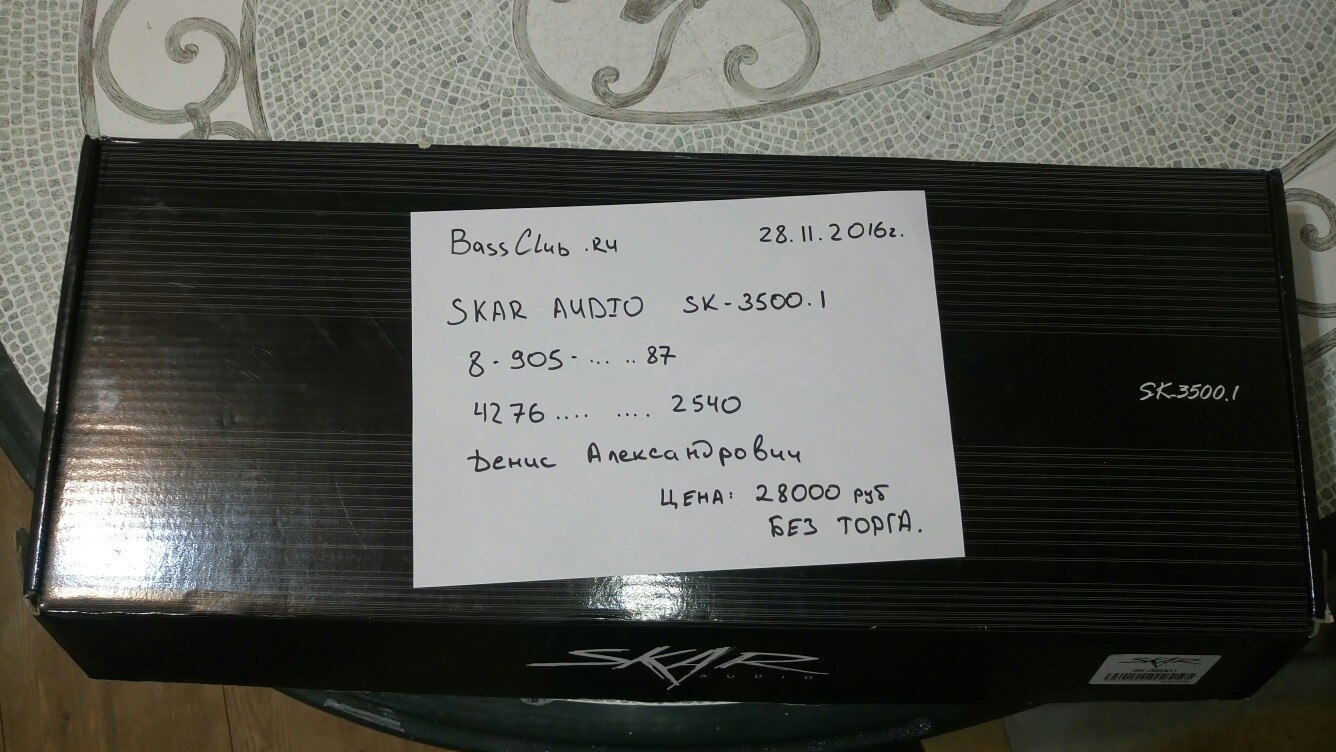 BassClub.ru 28.11.2016г.
SKAR AUDIO SK-3500.1
8-905-... .. 87
4276.... .... 2540
Денис Александрович
ЦЕНА: 28000 руб
БЕЗ ТОРГА.
SK-3500.1
SKAR
AUDIO
SKAR
SK-3500.1